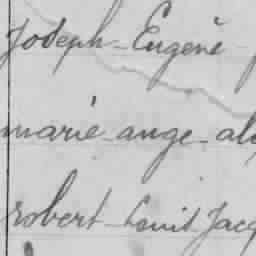 Joseph - Eugène -
marie - ange - al
robert - Louis Jacq